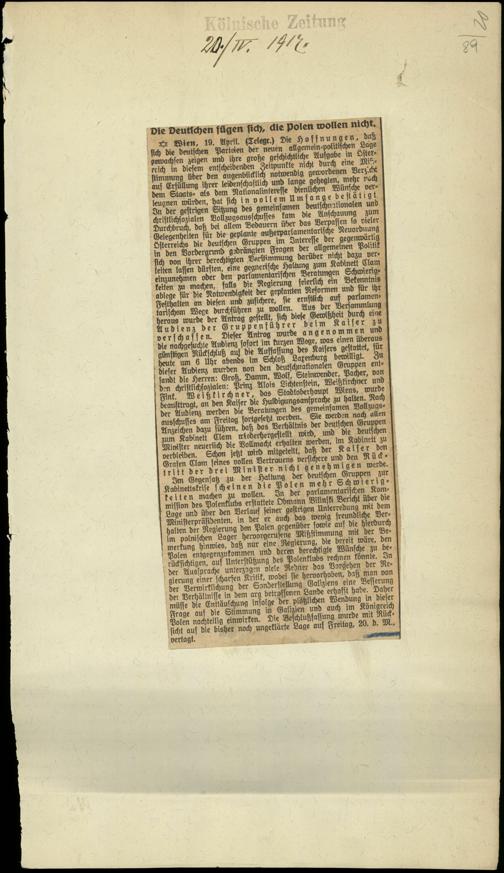 Kölnische Zeitung
20./IV. 1917.
20
89
Die Deutschen fügen sich, die Polen wollen nicht.
✡ Wien, 19. April. (Telegr.) Die Hoffnungen, daß
sich die deutschen Parteien der neuen allgemein-politischen Lage
gewachsen zeigen und ihre große geschichtliche Aufgabe in Öster-
reich in diesem entscheidenden Zeitpunkte nicht durch eine Miß-
stimmung über den augenblicklich notwendig gewordenen Verzicht
auf Erfüllung ihrer leidenschaftlich und lange gehegten, mehr noch
dem Staats- als dem Nationalinteresse dienlichen Wünsche ver-
leugnen würden, hat sich in vollem Umfange bestätigt.
In der gestrigen Sitzung des gemeinsamen deutschnationalen und
christlichsozialen Vollzugsausschusses kam die Anschauung zum
Durchbruch, daß bei allem Bedauern über das Verpassen so vieler
Gelegenheiten für die geplante außerparlamentarische Neuordnung
Österreichs die deutschen Gruppen im Interesse der gegenwärtig
in den Vordergrund gedrängten Fragen der allgemeinen Politik
sich von ihrer berechtigten Verstimmung darüber nicht dazu ver-
leiten lassen dürften, eine gegnerische Haltung zum Kabinett Clam
einzunehmen oder den parlamentarischen Beratungen Schwierig-
keiten zu machen, falls die Regierung feierlich ein Bekenntnis
ablege für die Notwendigkeit der geplanten Reformen und für ihr
Festhalten an diesen und zusichere, sie ernstlich auf parlamen-
tarischem Wege durchführen zu wollen. Aus der Versammlung
heraus wurde der Antrag gestellt, sich diese Gewißheit durch eine
Audienz der Gruppenführer beim Kaiser zu
verschaffen. Dieser Antrag wurde angenommen und
die nachgesuchte Audienz sofort im kurzen Wege, was einen überaus
günstigen Rückschluß auf die Auffassung des Kaisers gestattet, für
heute um 6 Uhr abends im Schloß Laxenburg bewilligt. Zu
dieser Audienz wurden von den deutschnationalen Gruppen ent-
sandt die Herren: Groß, Damm, Wolf, Steinwender, Pacher, von
den christlichsozialen: Prinz Alois Lichtenstein, Weißkirchner und
Fink. Weißkirchner, das Stadtoberhaupt Wiens, wurde
beauftragt, an den Kaiser die Huldigungsansprache zu halten. Nach
der Audienz werden die Beratungen des gemeinsamen Vollzugs-
ausschusses am Freitag fortgesetzt werden. Sie werden nach allen
Anzeichen dazu führen, daß das Verhältnis der deutschen Gruppen
zum Kabinett Clam wiederhergestellt wird, und die deutschen
Minister neuerlich die Vollmacht erhalten werden, im Kabinett zu
verbleiben. Schon jetzt wird mitgeteilt, daß der Kaiser den
Grafen Clam seines vollen Vertrauens versichere und den Rück-
tritt der drei Minister nicht genehmigen werde.
Im Gegensatz zu der Haltung der deutschen Gruppen zur
Kabinettskrise scheinen die Polen mehr Schwierig-
keiten machen zu wollen. In der parlamentarischen Kom-
mission des Polenklubs erstattete Obmann Bilinski Bericht über die
Lage und über den Verlauf seiner gestrigen Unterredung mit dem
Ministerpräsidenten, in der er auch das wenig freundliche Ver-
halten der Regierung den Polen gegenüber sowie auf die hierdurch
im polnischen Lager hervorgerufene Mißstimmung mit der Be-
merkung hinwies, daß nur eine Regierung, die bereit wäre, den
Polen entgegenzukommen und deren berechtigte Wünsche zu be-
rücksichtigen, auf Unterstützung des Polenklubs rechnen könnte. In
der Aussprache unterzogen viele Redner das Vorgehen der Re-
gierung einer scharfen Kritik, wobei sie hervorhoben, daß man von
der Verwirklichung der Sonderstellung Galiziens eine Besserung
der Verhältnisse in dem arg betroffenen Lande erhofft habe. Daher
müsse die Enttäuschung infolge der plötzlichen Wendung in dieser
Frage auf die Stimmung in Galizien und auch im Königreich
Polen nachteilig einwirken. Die Beschlußfassung wurde mit Rück-
sicht auf die bisher noch ungeklärte Lage auf Freitag, 20. d. M.,
vertagt.